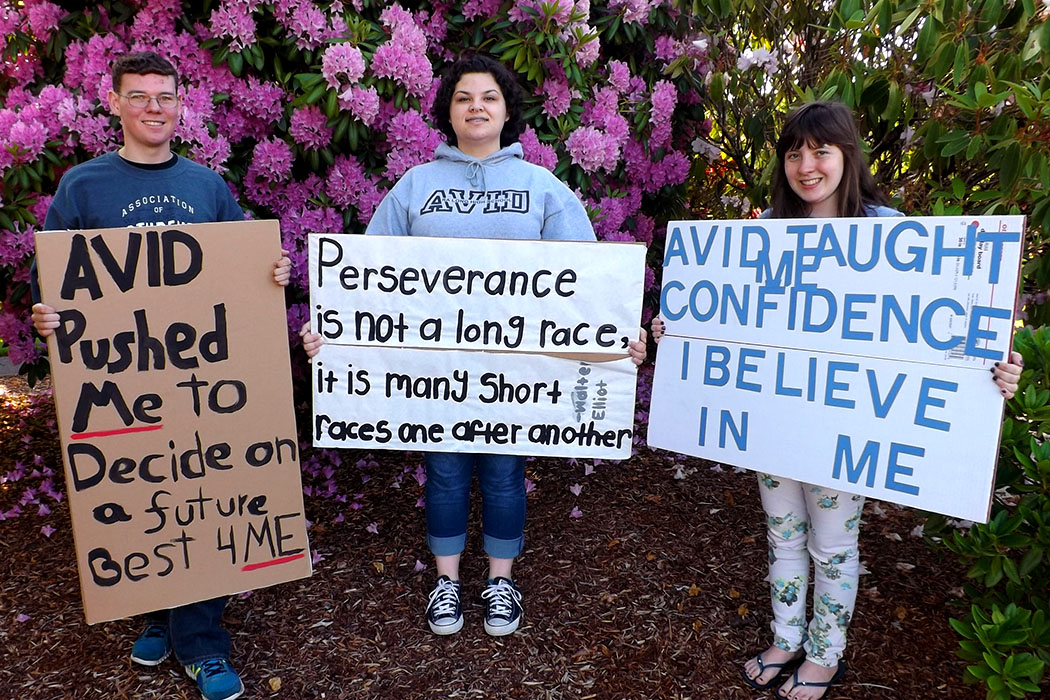 ASSOCIATION
OF
AVID
Pushed
Me TO
Decide on
a future
Best 4 ME
AVID
Perseverance
is not a long race,
it is many Short
races one after another
-Walter
Elliot
AVID TAUGHT
ME
CONFIDENCE
I BELIEVE
IN ME